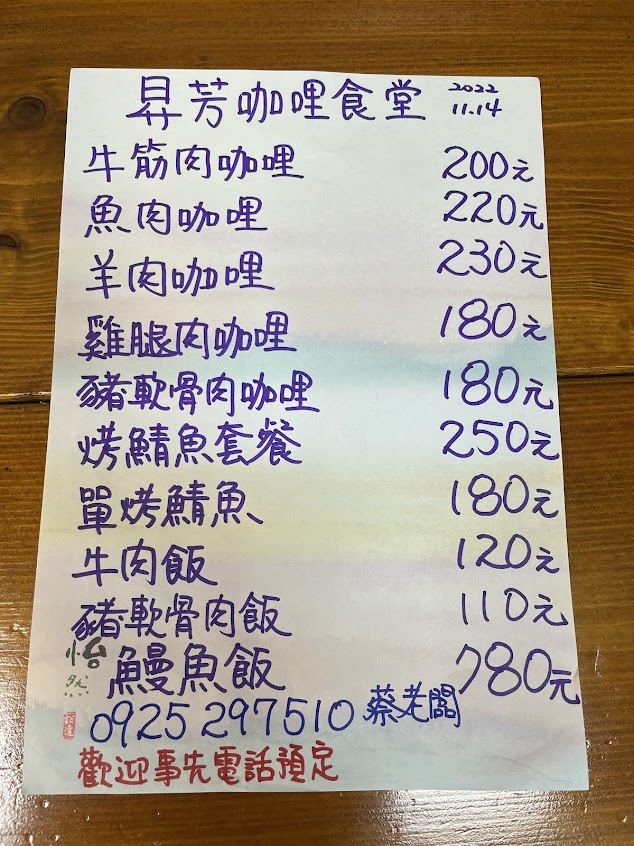 昇芳咖哩食堂 2022 11.14
牛筋肉咖哩 200元
魚肉咖哩 220元
羊肉咖哩 230元
雞腿肉咖哩 180元
豬軟骨肉咖哩 180元
烤鯖魚套餐 250元
單烤鯖魚 180元
牛肉飯 120元
豬軟骨肉飯 110元
鰻魚飯 780元
怡然
0925297510 蔡老闆
歡迎事先電話預定